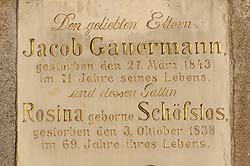 Den geliebten Eltern
Jacob Gauermann,
gestorben den 27. März 1843
im 71. Jahre seines Lebens.
und dessen Gattin
Rosina geborne Schöfstos,
gestorben den 3. Oktober 1838
im 69. Jahre ihres Lebens.